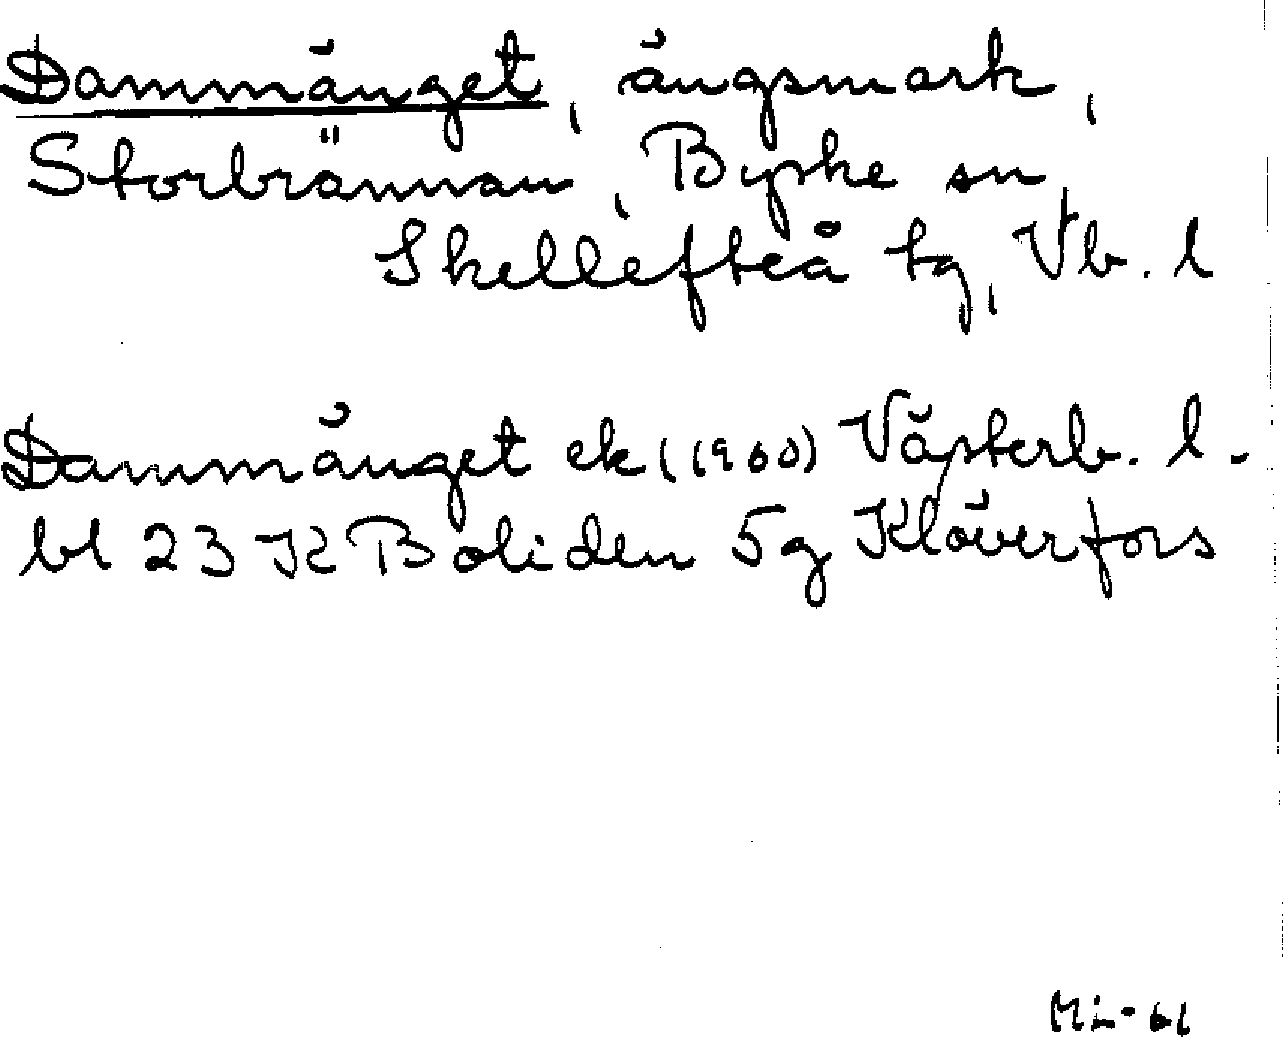 Dammänget, ängsmark,
Storbrännan, Byske sn,
Skellefteå tg, Vb. l
Dammänget ek (1960) Västerb. l.
bl 23 K Boliden 5g Klöverfors
Mi-61